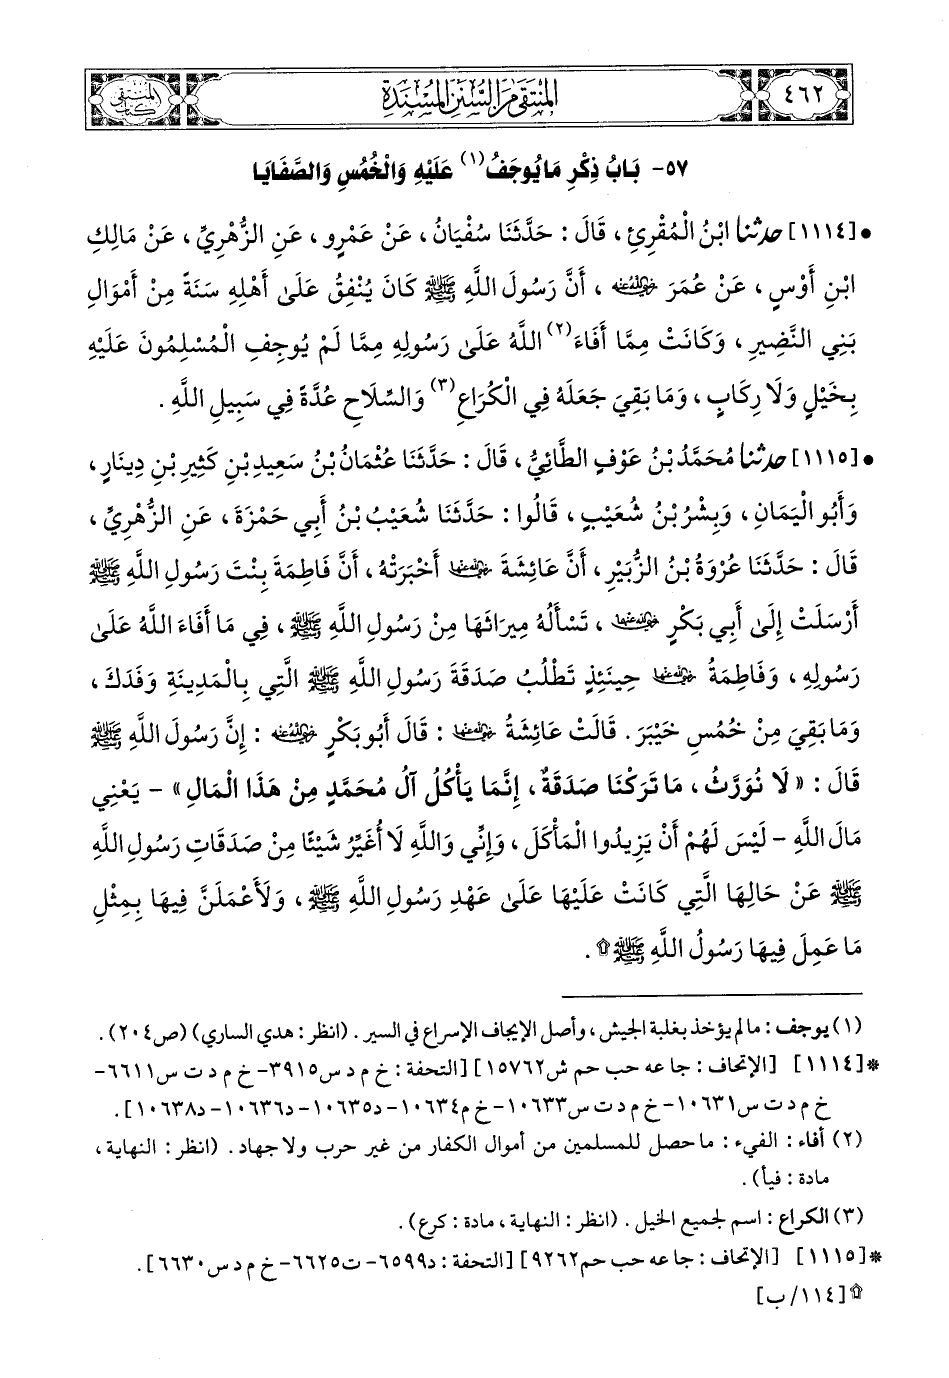 ٤٦٢
المنتقى من السنن المسندة
كتاب المنتقى
٥٧- بَابُ ذِكْرِ مَا يُوجَفُ(١) عَلَيْهِ وَالْخُمُسِ وَالصَّفَايَا
• [١١١٤] حدثنا ابْنُ الْمُقْرِئِ، قَالَ: حَدَّثَنَا سُفْيَانُ، عَنْ عَمْرٍو، عَنِ الزُّهْرِيِّ، عَنْ مَالِكِ
ابْنِ أَوْسٍ، عَنْ عُمَرَ رضي الله عنه، أَنَّ رَسُولَ اللَّهِ ﷺ كَانَ يُنْفِقُ عَلَىٰ أَهْلِهِ سَنَةً مِنْ أَمْوَالِ
بَنِي النَّضِيرِ، وَكَانَتْ مِمَّا أَفَاءَ(٢) اللَّهُ عَلَىٰ رَسُولِهِ مِمَّا لَمْ يُوجِفِ الْمُسْلِمُونَ عَلَيْهِ
بِخَيْلٍ وَلَا رِكَابٍ، وَمَا بَقِيَ جَعَلَهُ فِي الْكُرَاعِ(٣) وَالسِّلَاحِ عُدَّةً فِي سَبِيلِ اللَّهِ.
• [١١١٥] حدثنا مُحَمَّدُ بْنُ عَوْفٍ الطَّائِيُّ، قَالَ: حَدَّثَنَا عُثْمَانُ بْنُ سَعِيدِ بْنِ كَثِيرِ بْنِ دِينَارٍ،
وَأَبُو الْيَمَانِ، وَبِشْرُ بْنُ شُعَيْبٍ، قَالُوا: حَدَّثَنَا شُعَيْبُ بْنُ أَبِي حَمْزَةَ، عَنِ الزُّهْرِيِّ،
قَالَ: حَدَّثَنَا عُرْوَةُ بْنُ الزُّبَيْرِ، أَنَّ عَائِشَةَ رضي الله عنها أَخْبَرَتْهُ، أَنَّ فَاطِمَةَ بِنْتَ رَسُولِ اللَّهِ ﷺ
أَرْسَلَتْ إِلَىٰ أَبِي بَكْرٍ رضي الله عنهما، تَسْأَلُهُ مِيرَاثَهَا مِنْ رَسُولِ اللَّهِ ﷺ، فِي مَا أَفَاءَ اللَّهُ عَلَىٰ
رَسُولِهِ، وَفَاطِمَةُ رضي الله عنها حِينَئِذٍ تَطْلُبُ صَدَقَةَ رَسُولِ اللَّهِ ﷺ الَّتِي بِالْمَدِينَةِ وَفَدَكَ،
وَمَا بَقِيَ مِنْ خُمُسِ خَيْبَرَ. قَالَتْ عَائِشَةُ رضي الله عنها: قَالَ أَبُو بَكْرٍ رضي الله عنه: إِنَّ رَسُولَ اللَّهِ ﷺ
قَالَ: «لَا نُورَثُ، مَا تَرَكْنَا صَدَقَةٌ، إِنَّمَا يَأْكُلُ آلُ مُحَمَّدٍ مِنْ هَذَا الْمَالِ» - يَعْنِي
مَالَ اللَّهِ - لَيْسَ لَهُمْ أَنْ يَزِيدُوا الْمَأْكَلَ، وَإِنِّي وَاللَّهِ لَا أُغَيِّرُ شَيْئًا مِنْ صَدَقَاتِ رَسُولِ اللَّهِ
ﷺ عَنْ حَالِهَا الَّتِي كَانَتْ عَلَيْهَا عَلَىٰ عَهْدِ رَسُولِ اللَّهِ ﷺ، وَلَأَعْمَلَنَّ فِيهَا بِمِثْلِ
مَا عَمِلَ فِيهَا رَسُولُ اللَّهِ ﷺ ۩.
(١) يوجف: ما لم يؤخذ بغلبة الجيش، وأصل الإيجاف الإسراع في السير. (انظر: هدي الساري) (ص٢٠٤).
*[١١١٤] [الإتحاف: جا عه حب حم ش١٥٧٦٢] [التحفة: خ م د س٣٩١٥- خ م د ت س٦٦١١-
خ م د ت س١٠٦٣١- خ م د ت س١٠٦٣٣- خ م١٠٦٣٤- د١٠٦٣٥- د١٠٦٣٦- د١٠٦٣٨].
(٢) أفاء: الفيء: ما حصل للمسلمين من أموال الكفار من غير حرب ولا جهاد. (انظر: النهاية،
مادة: فيأ).
(٣) الكراع: اسم لجميع الخيل. (انظر: النهاية، مادة: كرع).
*[١١١٥] [الإتحاف: جا عه حب حم٩٢٦٢] [التحفة: د٦٥٩٩- ت٦٦٢٥- خ م د س٦٦٣٠].
۩[١١٤/ب]